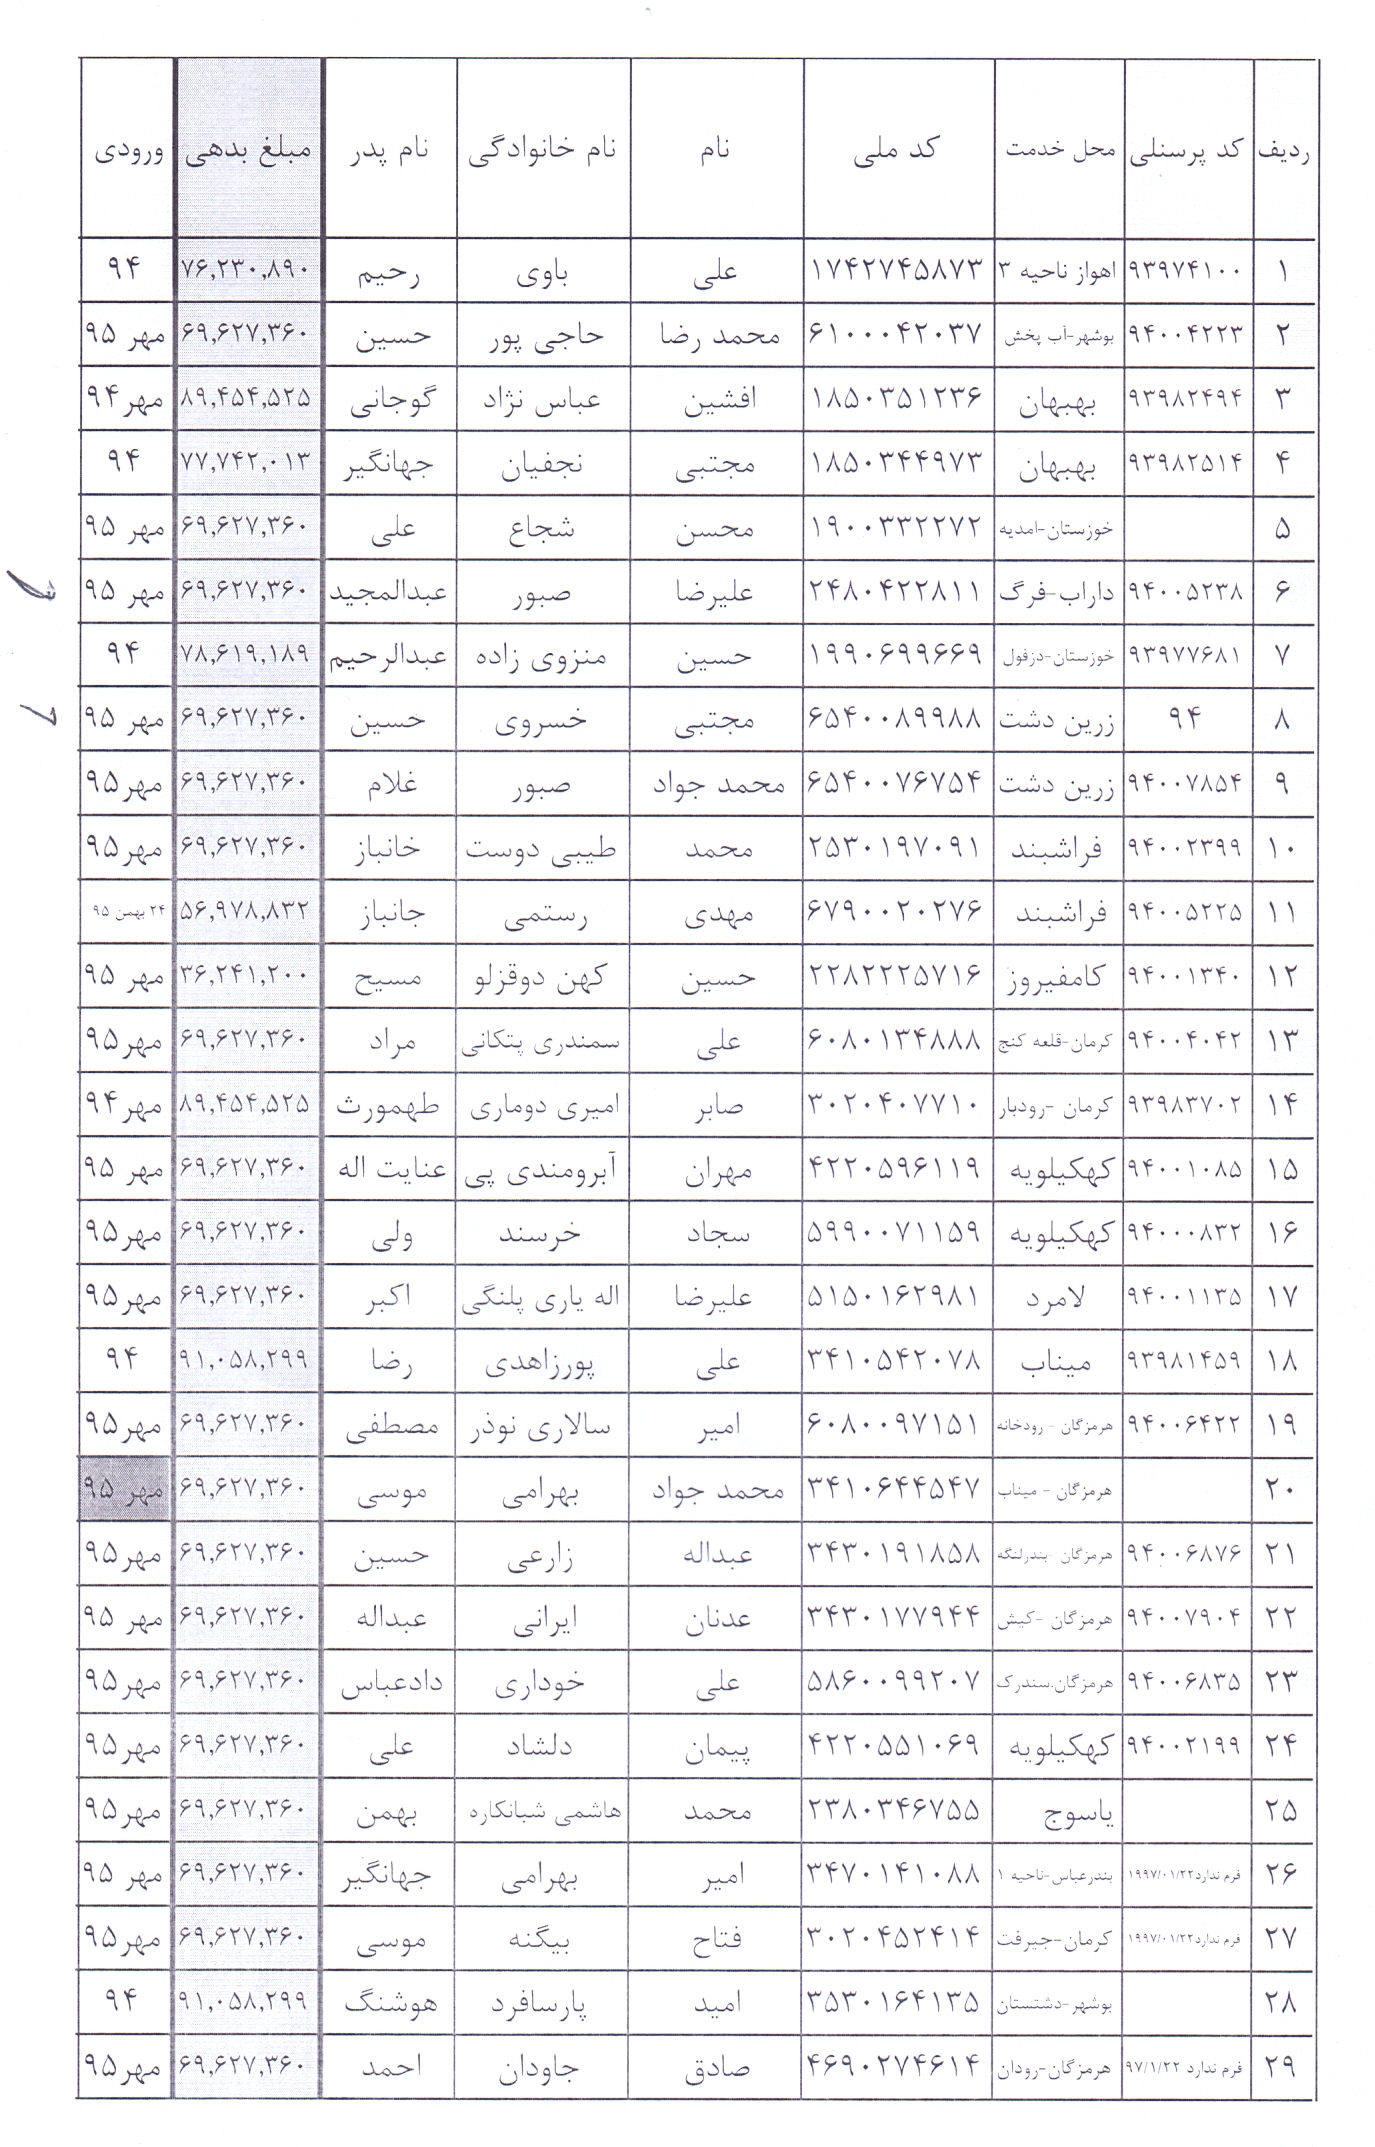 ردیف کد پرسنلی محل خدمت کد ملی نام نام خانوادگی نام پدر مبلغ بدهی ورودی
۱ ۹۳۹۷۴۱۰۰ اهواز ناحیه ۳ ۱۷۴۲۷۴۵۸۷۳ علی باوی رحیم ۷۶,۲۳۰,۸۹۰ ۹۴
۲ ۹۴۰۰۴۲۲۳ بوشهر-آب پخش ۶۱۰۰۰۴۲۰۳۷ محمد رضا حاجی پور حسین ۶۹,۶۲۷,۳۶۰ مهر ۹۵
۳ ۹۳۹۸۲۴۹۴ بهبهان ۱۸۵۰۳۵۱۲۳۶ افشین عباس نژاد گوجانی ۸۹,۴۵۴,۵۲۵ مهر۹۴
۴ ۹۳۹۸۲۵۱۴ بهبهان ۱۸۵۰۳۴۴۹۷۳ مجتبی نجفیان جهانگیر ۷۷,۷۴۲,۰۱۳ ۹۴
۵ خوزستان-امدیه ۱۹۰۰۳۳۲۲۷۲ محسن شجاع علی ۶۹,۶۲۷,۳۶۰ مهر ۹۵
۶ ۹۴۰۰۵۲۳۸ داراب-فرگ ۲۴۸۰۴۲۲۸۱۱ علیرضا صبور عبدالمجید ۶۹,۶۲۷,۳۶۰ مهر ۹۵
۷ ۹۳۹۷۷۶۸۱ خوزستان-دزفول ۱۹۹۰۶۹۹۶۶۹ حسین منزوی زاده عبدالرحیم ۷۸,۶۱۹,۱۸۹ ۹۴
۸ ۹۴ زرین دشت ۶۵۴۰۰۸۹۹۸۸ مجتبی خسروی حسین ۶۹,۶۲۷,۳۶۰ مهر ۹۵
۹ ۹۴۰۰۷۸۵۴ زرین دشت ۶۵۴۰۰۷۶۷۵۴ محمد جواد صبور غلام ۶۹,۶۲۷,۳۶۰ مهر۹۵
۱۰ ۹۴۰۰۲۳۹۹ فراشبند ۲۵۳۰۱۹۷۰۹۱ محمد طیبی دوست خانباز ۶۹,۶۲۷,۳۶۰ مهر۹۵
۱۱ ۹۴۰۰۵۲۲۵ فراشبند ۶۷۹۰۰۲۰۲۷۶ مهدی رستمی جانباز ۵۶,۹۷۸,۸۳۲ ۲۴ بهمن ۹۵
۱۲ ۹۴۰۰۱۳۴۰ کامفیروز ۲۲۸۲۲۲۵۷۱۶ حسین کهن دوقزلو مسیح ۳۶,۲۴۱,۲۰۰ مهر ۹۵
۱۳ ۹۴۰۰۴۰۴۲ کرمان-قلعه کنج ۶۰۸۰۱۳۴۸۸۸ علی سمندری پتکانی مراد ۶۹,۶۲۷,۳۶۰ مهر۹۵
۱۴ ۹۳۹۸۳۷۰۲ کرمان -رودبار ۳۰۲۰۴۰۷۷۱۰ صابر امیری دوماری طهمورث ۸۹,۴۵۴,۵۲۵ مهر۹۴
۱۵ ۹۴۰۰۱۰۸۵ کهکیلویه ۴۲۲۰۵۹۶۱۱۹ مهران آبرومندی پی عنایت اله ۶۹,۶۲۷,۳۶۰ مهر ۹۵
۱۶ ۹۴۰۰۰۸۳۲ کهکیلویه ۵۹۹۰۰۷۱۱۵۹ سجاد خرسند ولی ۶۹,۶۲۷,۳۶۰ مهر۹۵
۱۷ ۹۴۰۰۱۱۳۵ لامرد ۵۱۵۰۱۶۲۹۸۱ علیرضا اله یاری پلنگی اکبر ۶۹,۶۲۷,۳۶۰ مهر۹۵
۱۸ ۹۳۹۸۱۴۵۹ میناب ۳۴۱۰۵۴۲۰۷۸ علی پورزاهدی رضا ۹۱,۰۵۸,۲۹۹ ۹۴
۱۹ ۹۴۰۰۶۴۲۲ هرمزگان - رودخانه ۶۰۸۰۰۹۷۱۵۱ امیر سالاری نوذر مصطفی ۶۹,۶۲۷,۳۶۰ مهر۹۵
۲۰ هرمزگان - میناب ۳۴۱۰۶۴۴۵۴۷ محمد جواد بهرامی موسی ۶۹,۶۲۷,۳۶۰ مهر ۹۵
۲۱ ۹۴۰۰۶۸۷۶ هرمزگان -بندرلنگه ۳۴۳۰۱۹۱۸۵۸ عبداله زارعی حسین ۶۹,۶۲۷,۳۶۰ مهر۹۵
۲۲ ۹۴۰۰۷۹۰۴ هرمزگان -کیش ۳۴۳۰۱۷۷۹۴۴ عدنان ایرانی عبداله ۶۹,۶۲۷,۳۶۰ مهر ۹۵
۲۳ ۹۴۰۰۶۸۳۵ هرمزگان.سندرک ۵۸۶۰۰۹۹۲۰۷ علی خوداری دادعباس ۶۹,۶۲۷,۳۶۰ مهر۹۵
۲۴ ۹۴۰۰۲۱۹۹ کهکیلویه ۴۲۲۰۵۵۱۰۶۹ پیمان دلشاد علی ۶۹,۶۲۷,۳۶۰ مهر۹۵
۲۵ یاسوج ۲۳۸۰۳۴۶۷۵۵ محمد هاشمی شبانکاره بهمن ۶۹,۶۲۷,۳۶۰ مهر۹۵
۲۶ فرم ندارد۱۹۹۷/۰۱/۲۲ بندرعباس-ناحیه ۱ ۳۴۷۰۱۴۱۰۸۸ امیر بهرامی جهانگیر ۶۹,۶۲۷,۳۶۰ مهر ۹۵
۲۷ فرم ندارد۱۹۹۷/۰۱/۲۲ کرمان-جیرفت ۳۰۲۰۴۵۲۴۱۴ فتاح بیگنه موسی ۶۹,۶۲۷,۳۶۰ مهر۹۵
۲۸ بوشهر-دشتستان ۳۵۳۰۱۶۴۱۳۵ امید پارسافرد هوشنگ ۹۱,۰۵۸,۲۹۹ ۹۴
۲۹ فرم ندارد ۹۷/۱/۲۲ هرمزگان-رودان ۴۶۹۰۲۷۴۶۱۴ صادق جاودان احمد ۶۹,۶۲۷,۳۶۰ مهر۹۵